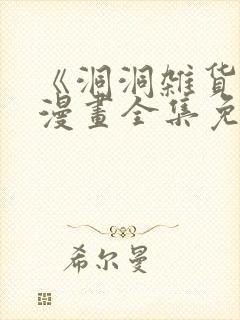 《洞洞雑货
漫畫全集免
希尔曼